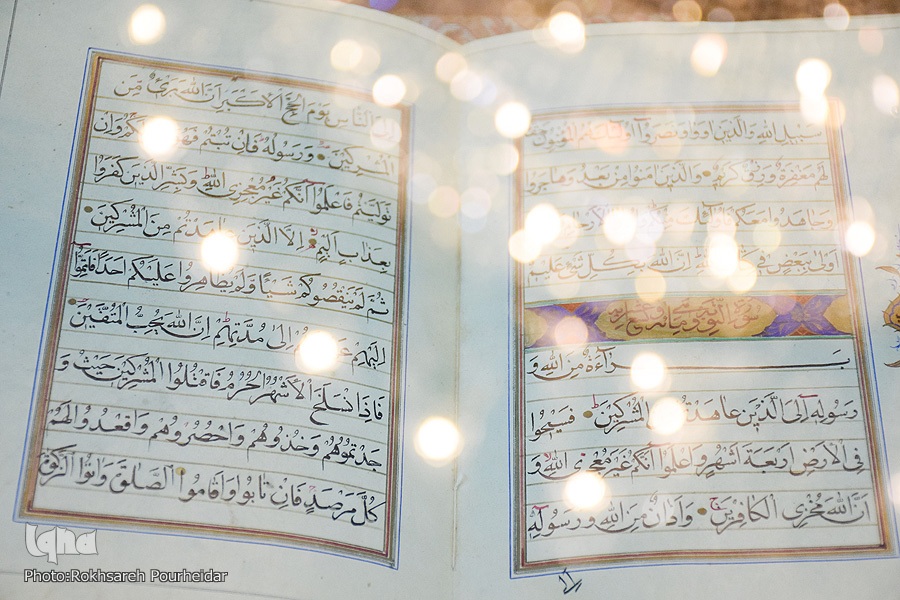 سَبِيلِ اللّٰهِ وَالَّذِينَ اٰوَوْا وَنَصَرُوا اُولٰئِكَ هُمُ الْمُؤْمِنُونَ
لَهُمْ مَغْفِرَةٌ وَرِزْقٌ كَرِيمٌ وَالَّذِينَ اٰمَنُوا مِنْ بَعْدُ وَهَاجَرُوا
وَجَاهَدُوا مَعَكُمْ فَاُولٰئِكَ الْاَرْحَامِ
اَوْلٰى بِبَعْضٍ فِي اِنَّ اللّٰهَ بِكُلِّ شَيْءٍ عَلِيمٌ
بَرَاءَةٌ مِنَ اللّٰهِ وَ
رَسُولِهِ اِلَى الَّذِينَ عَاهَدْتُمْ مِنَ الْمُشْرِكِينَ فَسِيحُوا
فِي الْاَرْضِ اَرْبَعَةَ اَشْهُرٍ وَاعْلَمُوا اَنَّكُمْ غَيْرُ مُعْجِزِي اللّٰهِ وَ
اَنَّ اللّٰهَ مُخْزِي الْكَافِرِينَ وَاَذَانٌ مِنَ اللّٰهِ وَرَسُولِهِ
اِلَى النَّاسِ يَوْمَ الْحَجِّ الْاَكْبَرِ اَنَّ اللّٰهَ بَرِيءٌ مِنَ
الْمُشْرِكِينَ وَرَسُولُهُ فَاِنْ تُبْتُمْ فَهُوَ لَكُمْ وَاِنْ
تَوَلَّيْتُمْ فَاعْلَمُوا اَنَّكُمْ غَيْرُ مُعْجِزِي اللّٰهِ وَبَشِّرِ الَّذِينَ كَفَرُوا
بِعَذَابٍ اَلِيمٍ اِلَّا الَّذِينَ عَاهَدْتُمْ مِنَ الْمُشْرِكِينَ
ثُمَّ لَمْ يَنْقُصُوكُمْ شَيْئًا وَلَمْ يُظَاهِرُوا عَلَيْكُمْ اَحَدًا فَاَتِمُّوا
اِلَيْهِمْ عَهْدَهُمْ اِلٰى مُدَّتِهِمْ اِنَّ اللّٰهَ يُحِبُّ الْمُتَّقِينَ
فَاِذَا انْسَلَخَ الْاَشْهُرُ الْحُرُمُ فَاقْتُلُوا الْمُشْرِكِينَ حَيْثُ وَ
جَدْتُمُوهُمْ وَخُذُوهُمْ وَاحْصُرُوهُمْ وَاقْعُدُوا لَهُمْ
كُلَّ مَرْصَدٍ فَاِنْ تَابُوا وَاَقَامُوا الصَّلٰوةَ وَاٰتَوُا الزَّكٰوةَ
Iqna
Photo:Rokhsareh Pourheidar